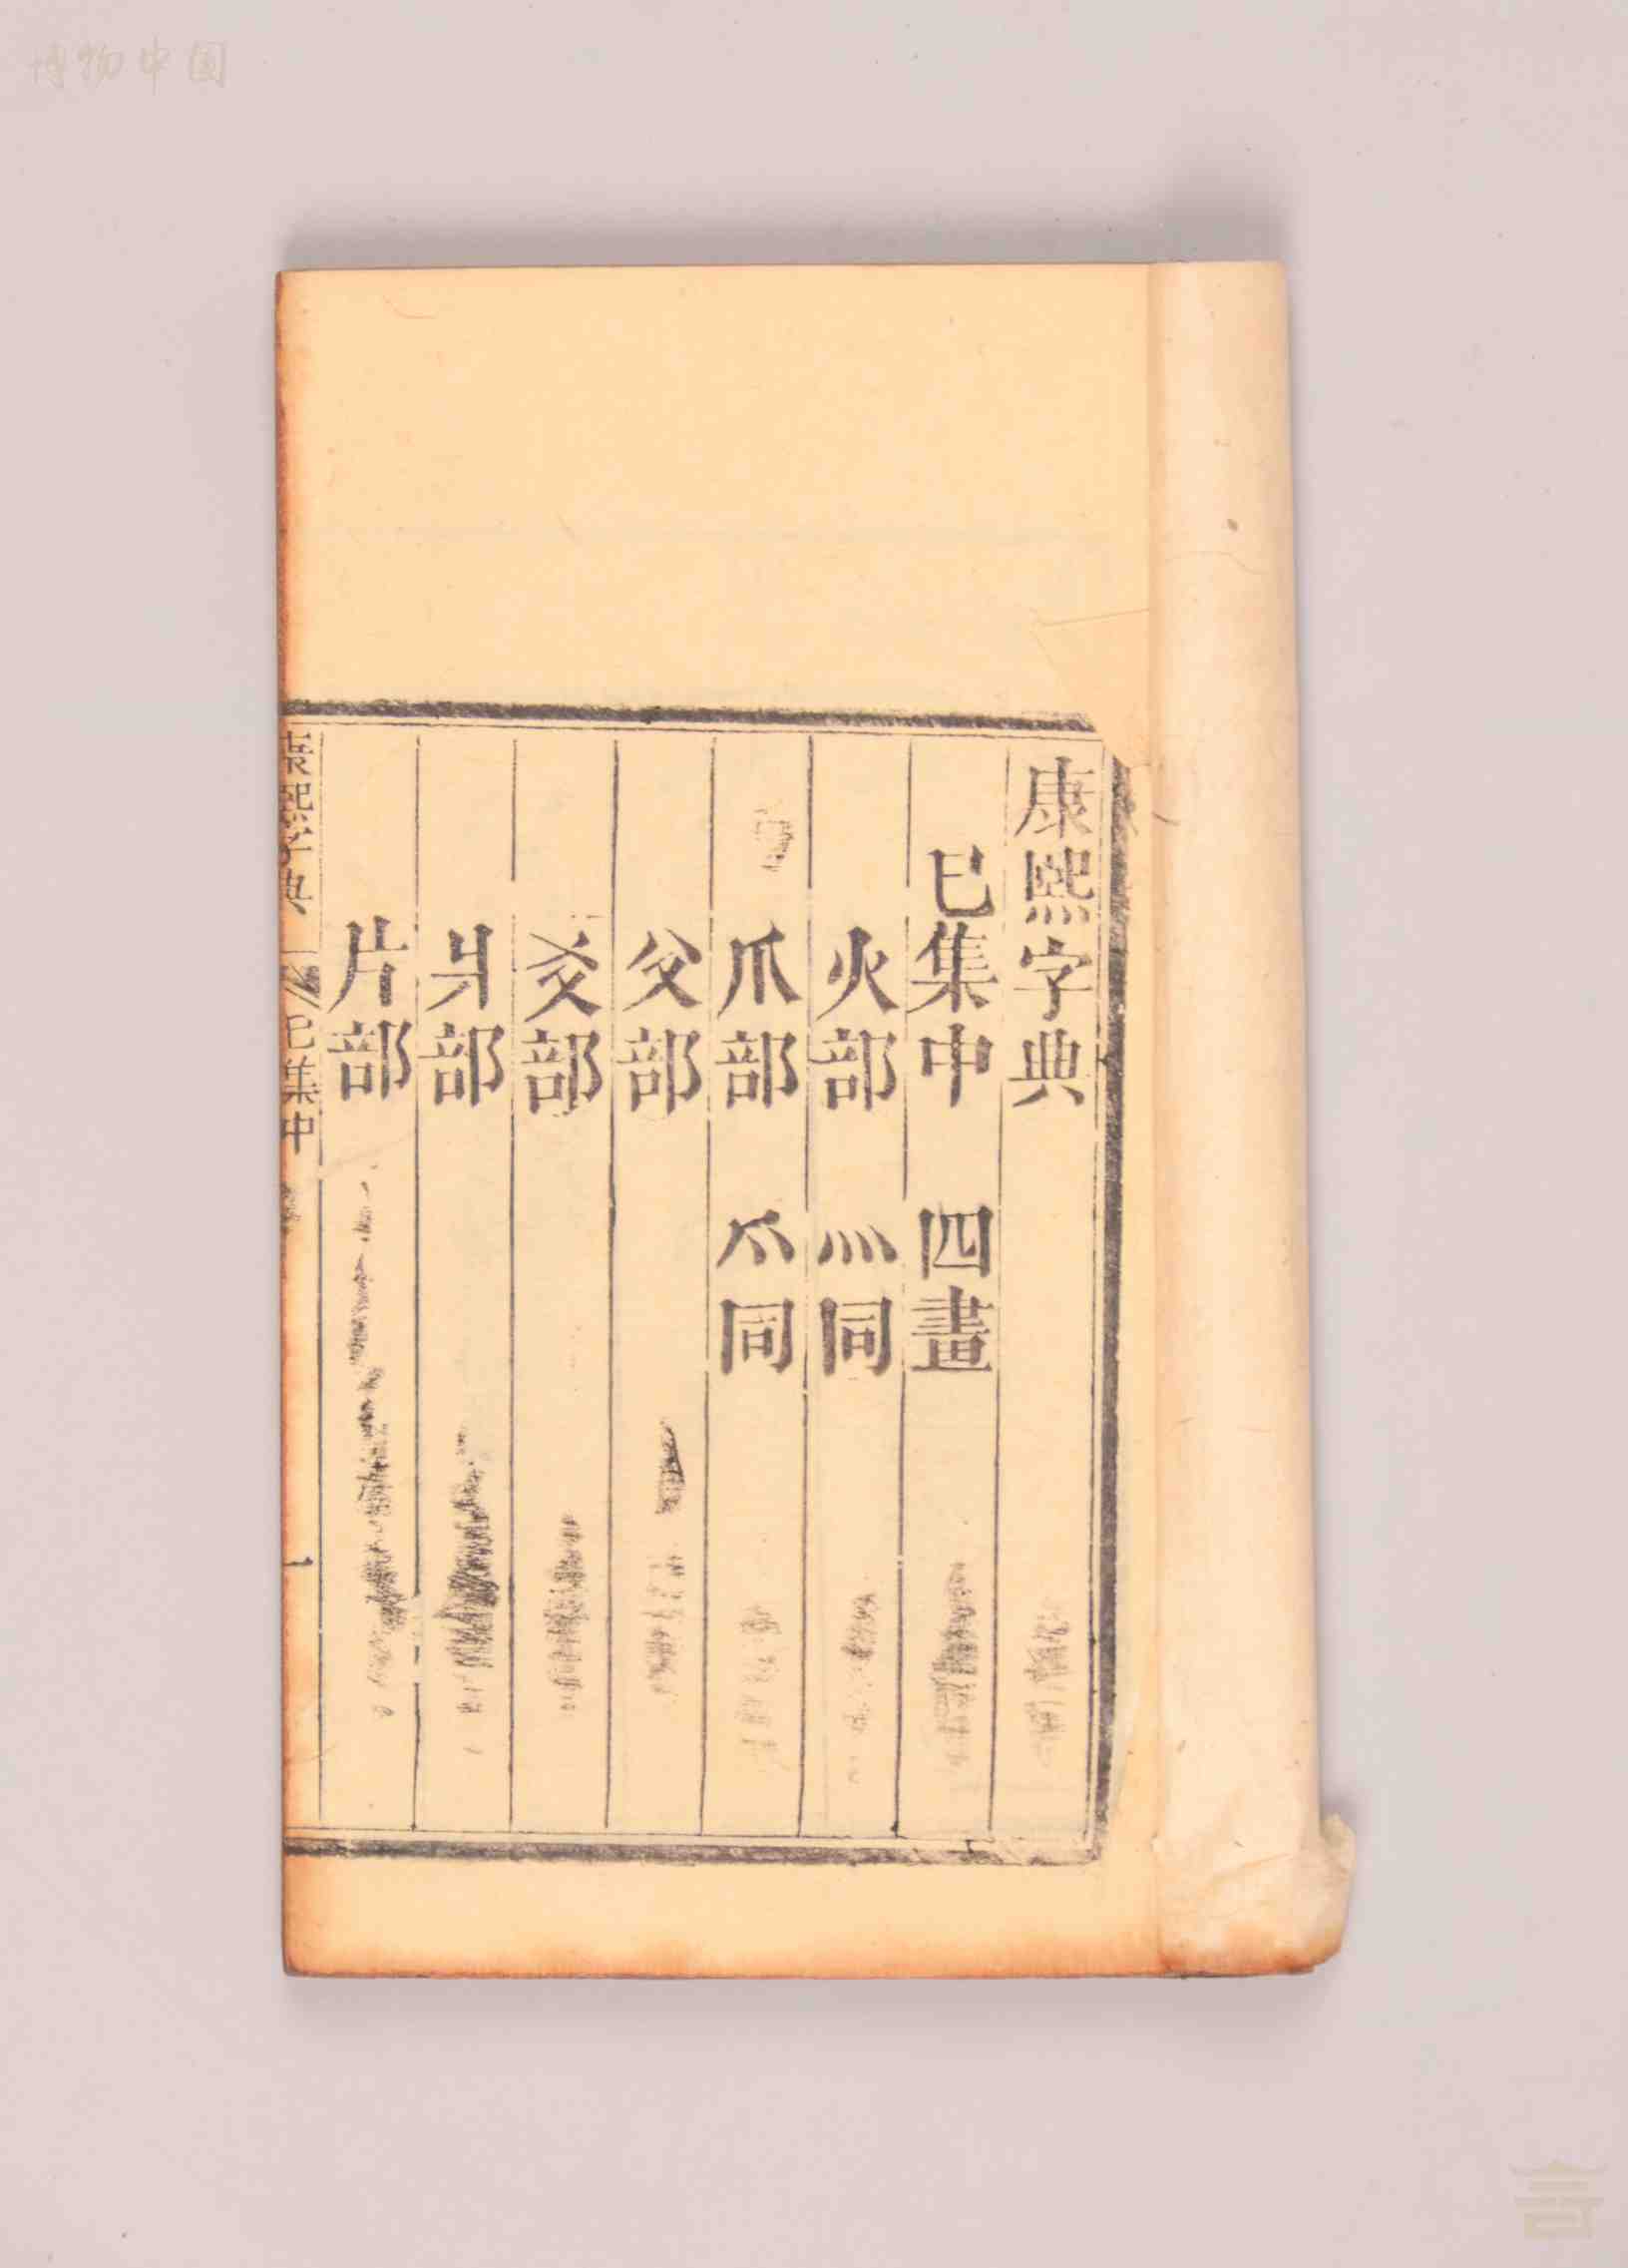 康熙字典
巳集中 四畫
火部 灬同
爪部 爫同
父部
爻部
爿部
片部
康熙字典 巳集中 一
博物中国